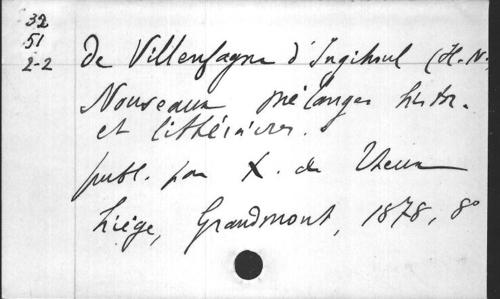 32
51
2-2
de Villenfagne d'Ingihoul (H. N.
Nouveaux mélanges histor.
et littéraires.
publ. par X. de Theux
Liége, Grandmont, 1878, 8°